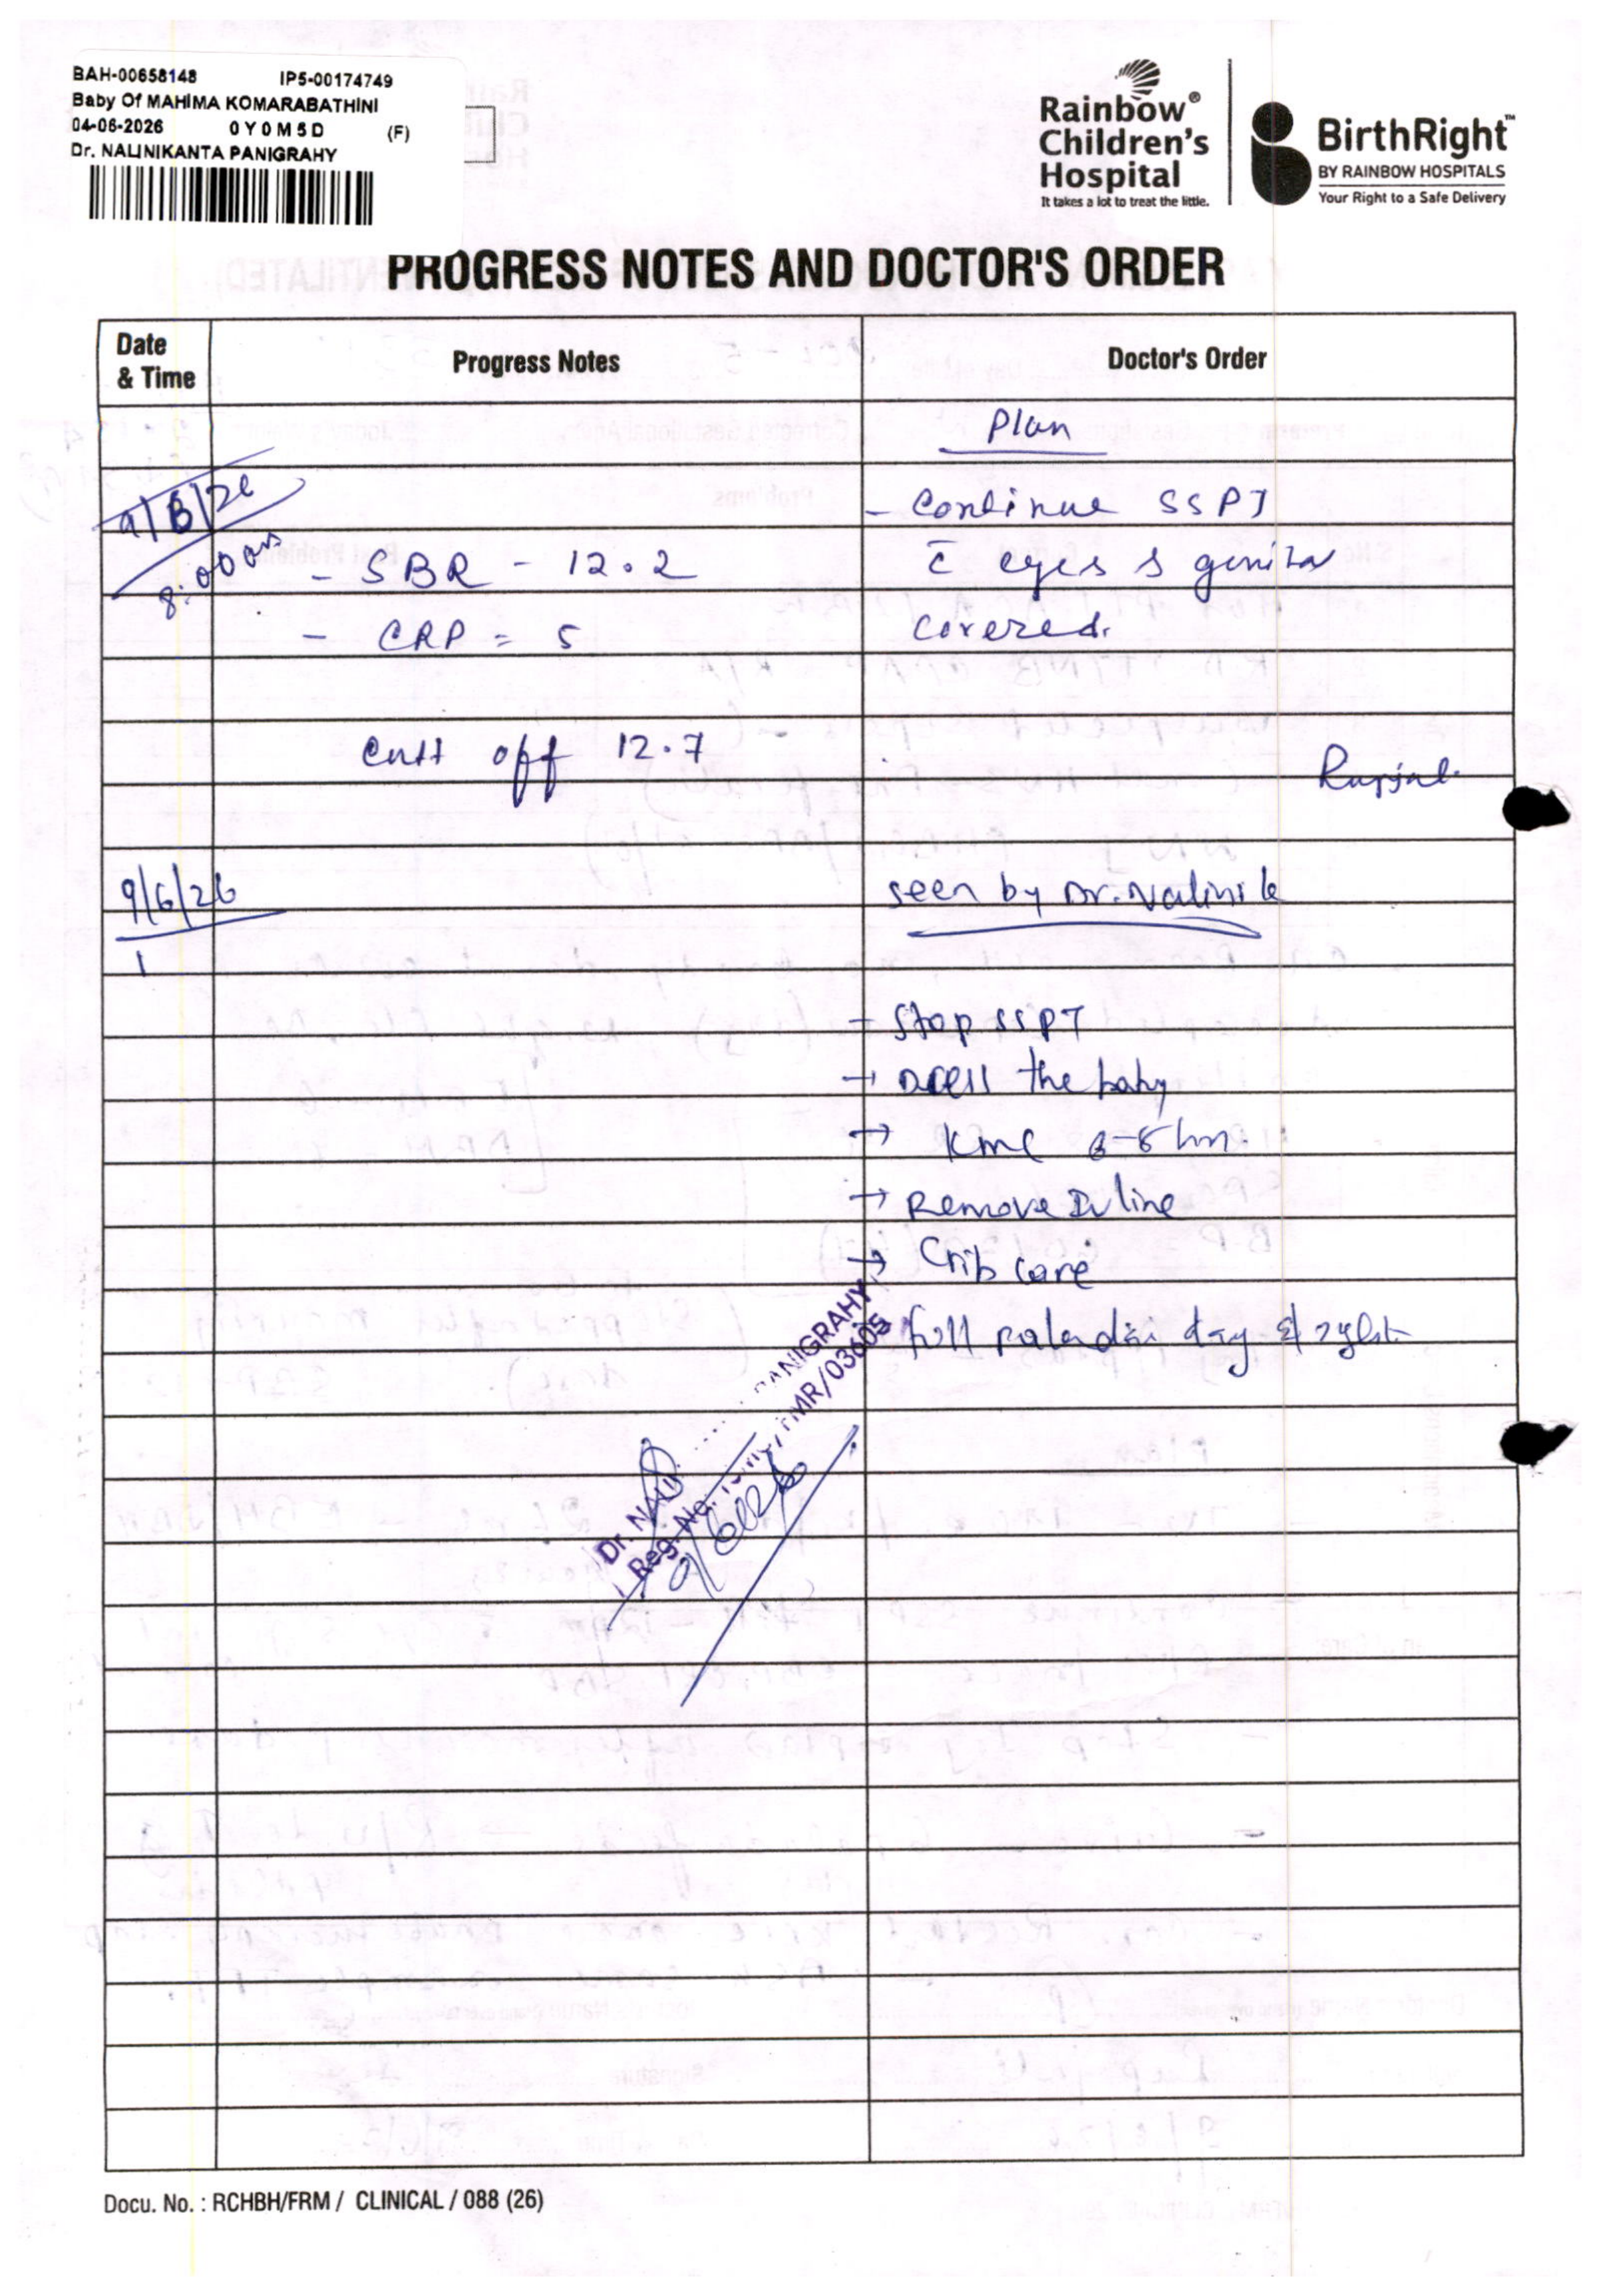 BAH-00658148 IP5-00174749
Baby Of MAHIMA KOMARABATHINI
04-06-2026 0Y0M5D (F)
Dr. NALINIKANTA PANIGRAHY
Rainbow®
Children's
Hospital
It takes a lot to treat the little.
BirthRight™
BY RAINBOW HOSPITALS
Your Right to a Safe Delivery
PROGRESS NOTES AND DOCTOR'S ORDER
Date & Time
Progress Notes
Doctor's Order
Plan
9/6/26
8:00am
- SBR - 12.2
- CRP = 5
- Continue SSPT
c̄ eyes
covered.
Cutt off 12.7
9/6/26
seen by Dr. Nalini k
- Stop SSPT
→ the baby
→ KMC 6-8 hrs.
→ Remove IV line
→ Crib care
full day
Dr. NALI PANIGRAHY
Reg. No. FMR/03605
Docu. No. : RCHBH/FRM / CLINICAL / 088 (26)